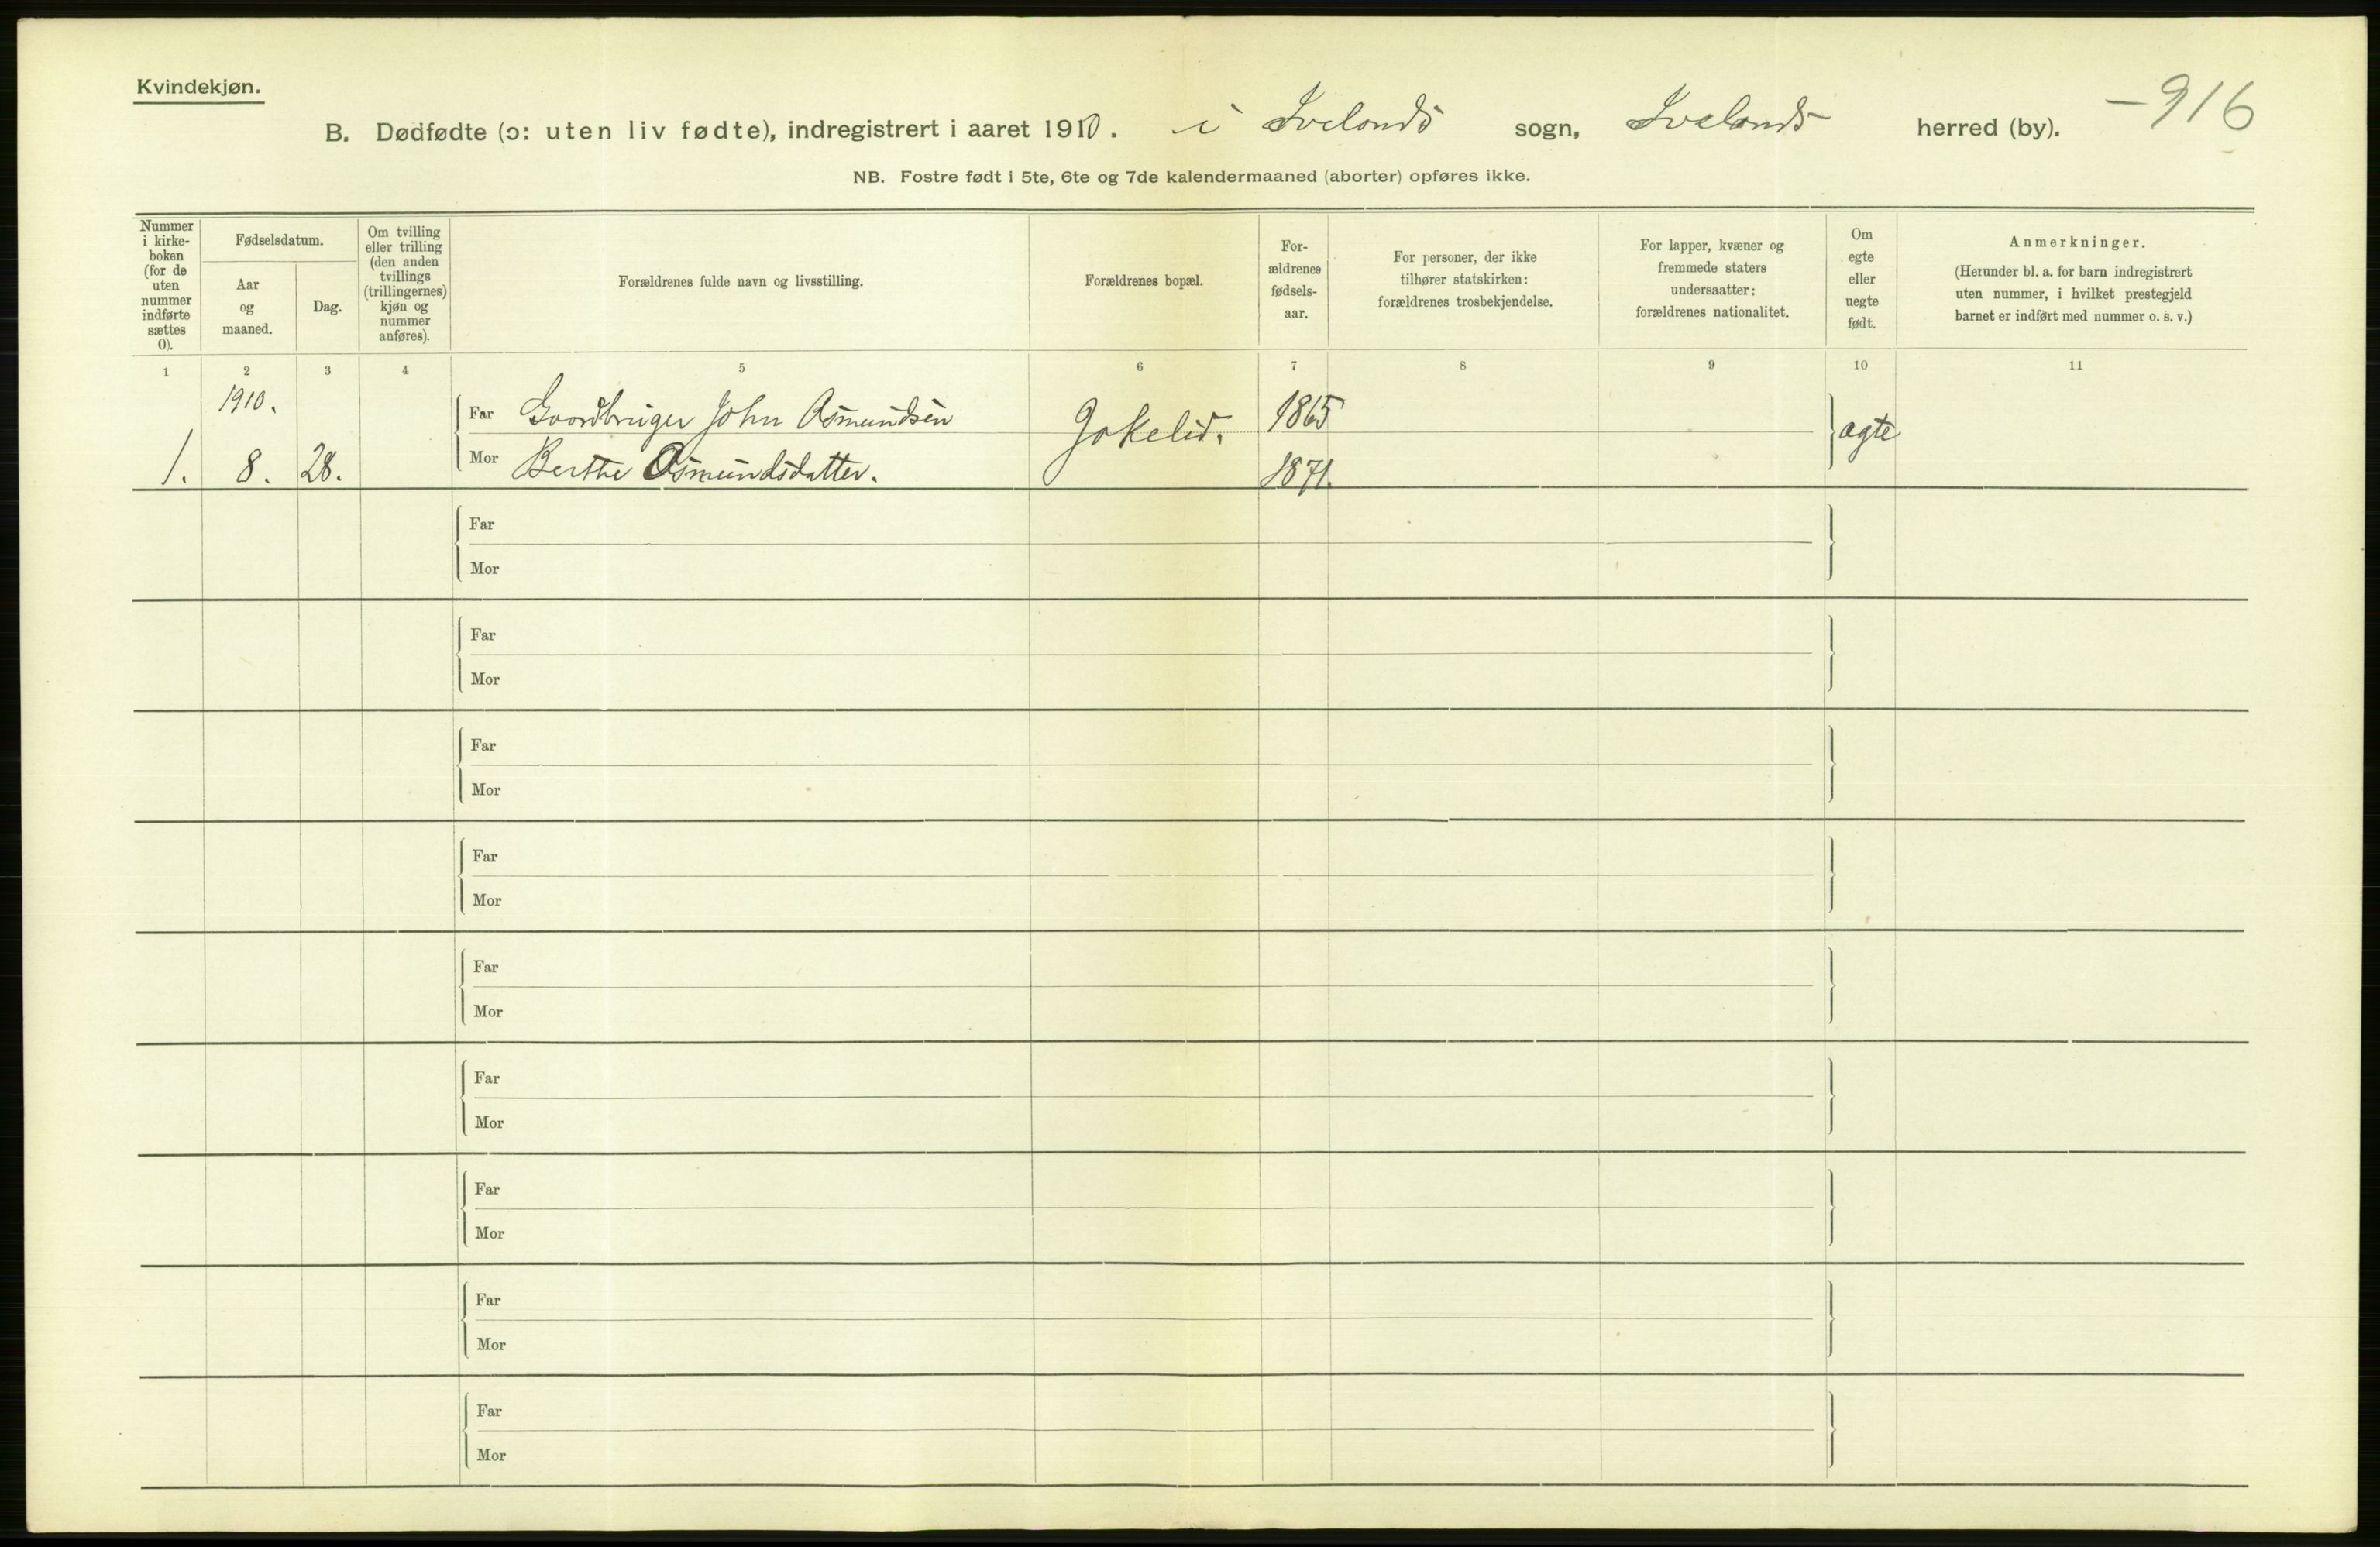 Kvindekjøn.
B. Dødfødte (ɔ: uten liv fødte), indregistrert i aaret 1910. i Ivelands sogn, Ivelands herred (by). —916
NB. Fostre født i 5te, 6te og 7de kalendermaaned (aborter) opføres ikke.
Nummer
i kirke-
boken
(for de
uten
nummer
indførte
sættes
0).
Fødselsdatum.
Aar
og
maaned.
Dag.
Om tvilling
eller trilling
(den anden
tvillings
(trillingernes)
kjøn og
nummer
anføres).
Forældrenes fulde navn og livsstilling.
Forældrenes bopæl.
For-
ældrenes
fødsels-
aar.
For personer, der ikke
tilhører statskirken:
forældrenes trosbekjendelse.
For lapper, kvæner og
fremmede staters
undersaatter:
forældrenes nationalitet.
Om
egte
eller
uegte
født.
Anmerkninger.
(Herunder bl. a. for barn indregistrert
uten nummer, i hvilket prestegjeld
barnet er indført med nummer o. s. v.)
1 2 3 4 5 6 7 8 9 10 11
1910.
Far Gaardbruger John Osmundsen 1865
Jokelid. ægte
1. 8. 28. Mor Berthe Osmundsdatter. 1871.
Far
Mor
Far
Mor
Far
Mor
Far
Mor
Far
Mor
Far
Mor
Far
Mor
Far
Mor
Far
Mor